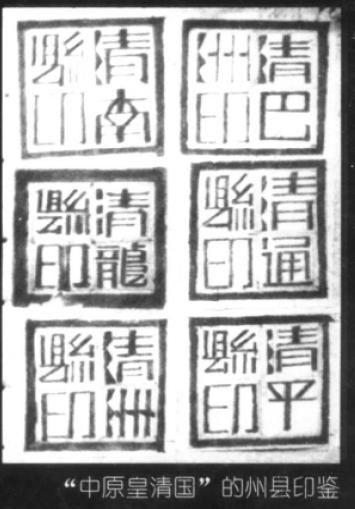 清縣印
清巴洲印
清龍縣印
清通縣印
清州縣印
清平縣印
“中原皇清国”的州县印鉴